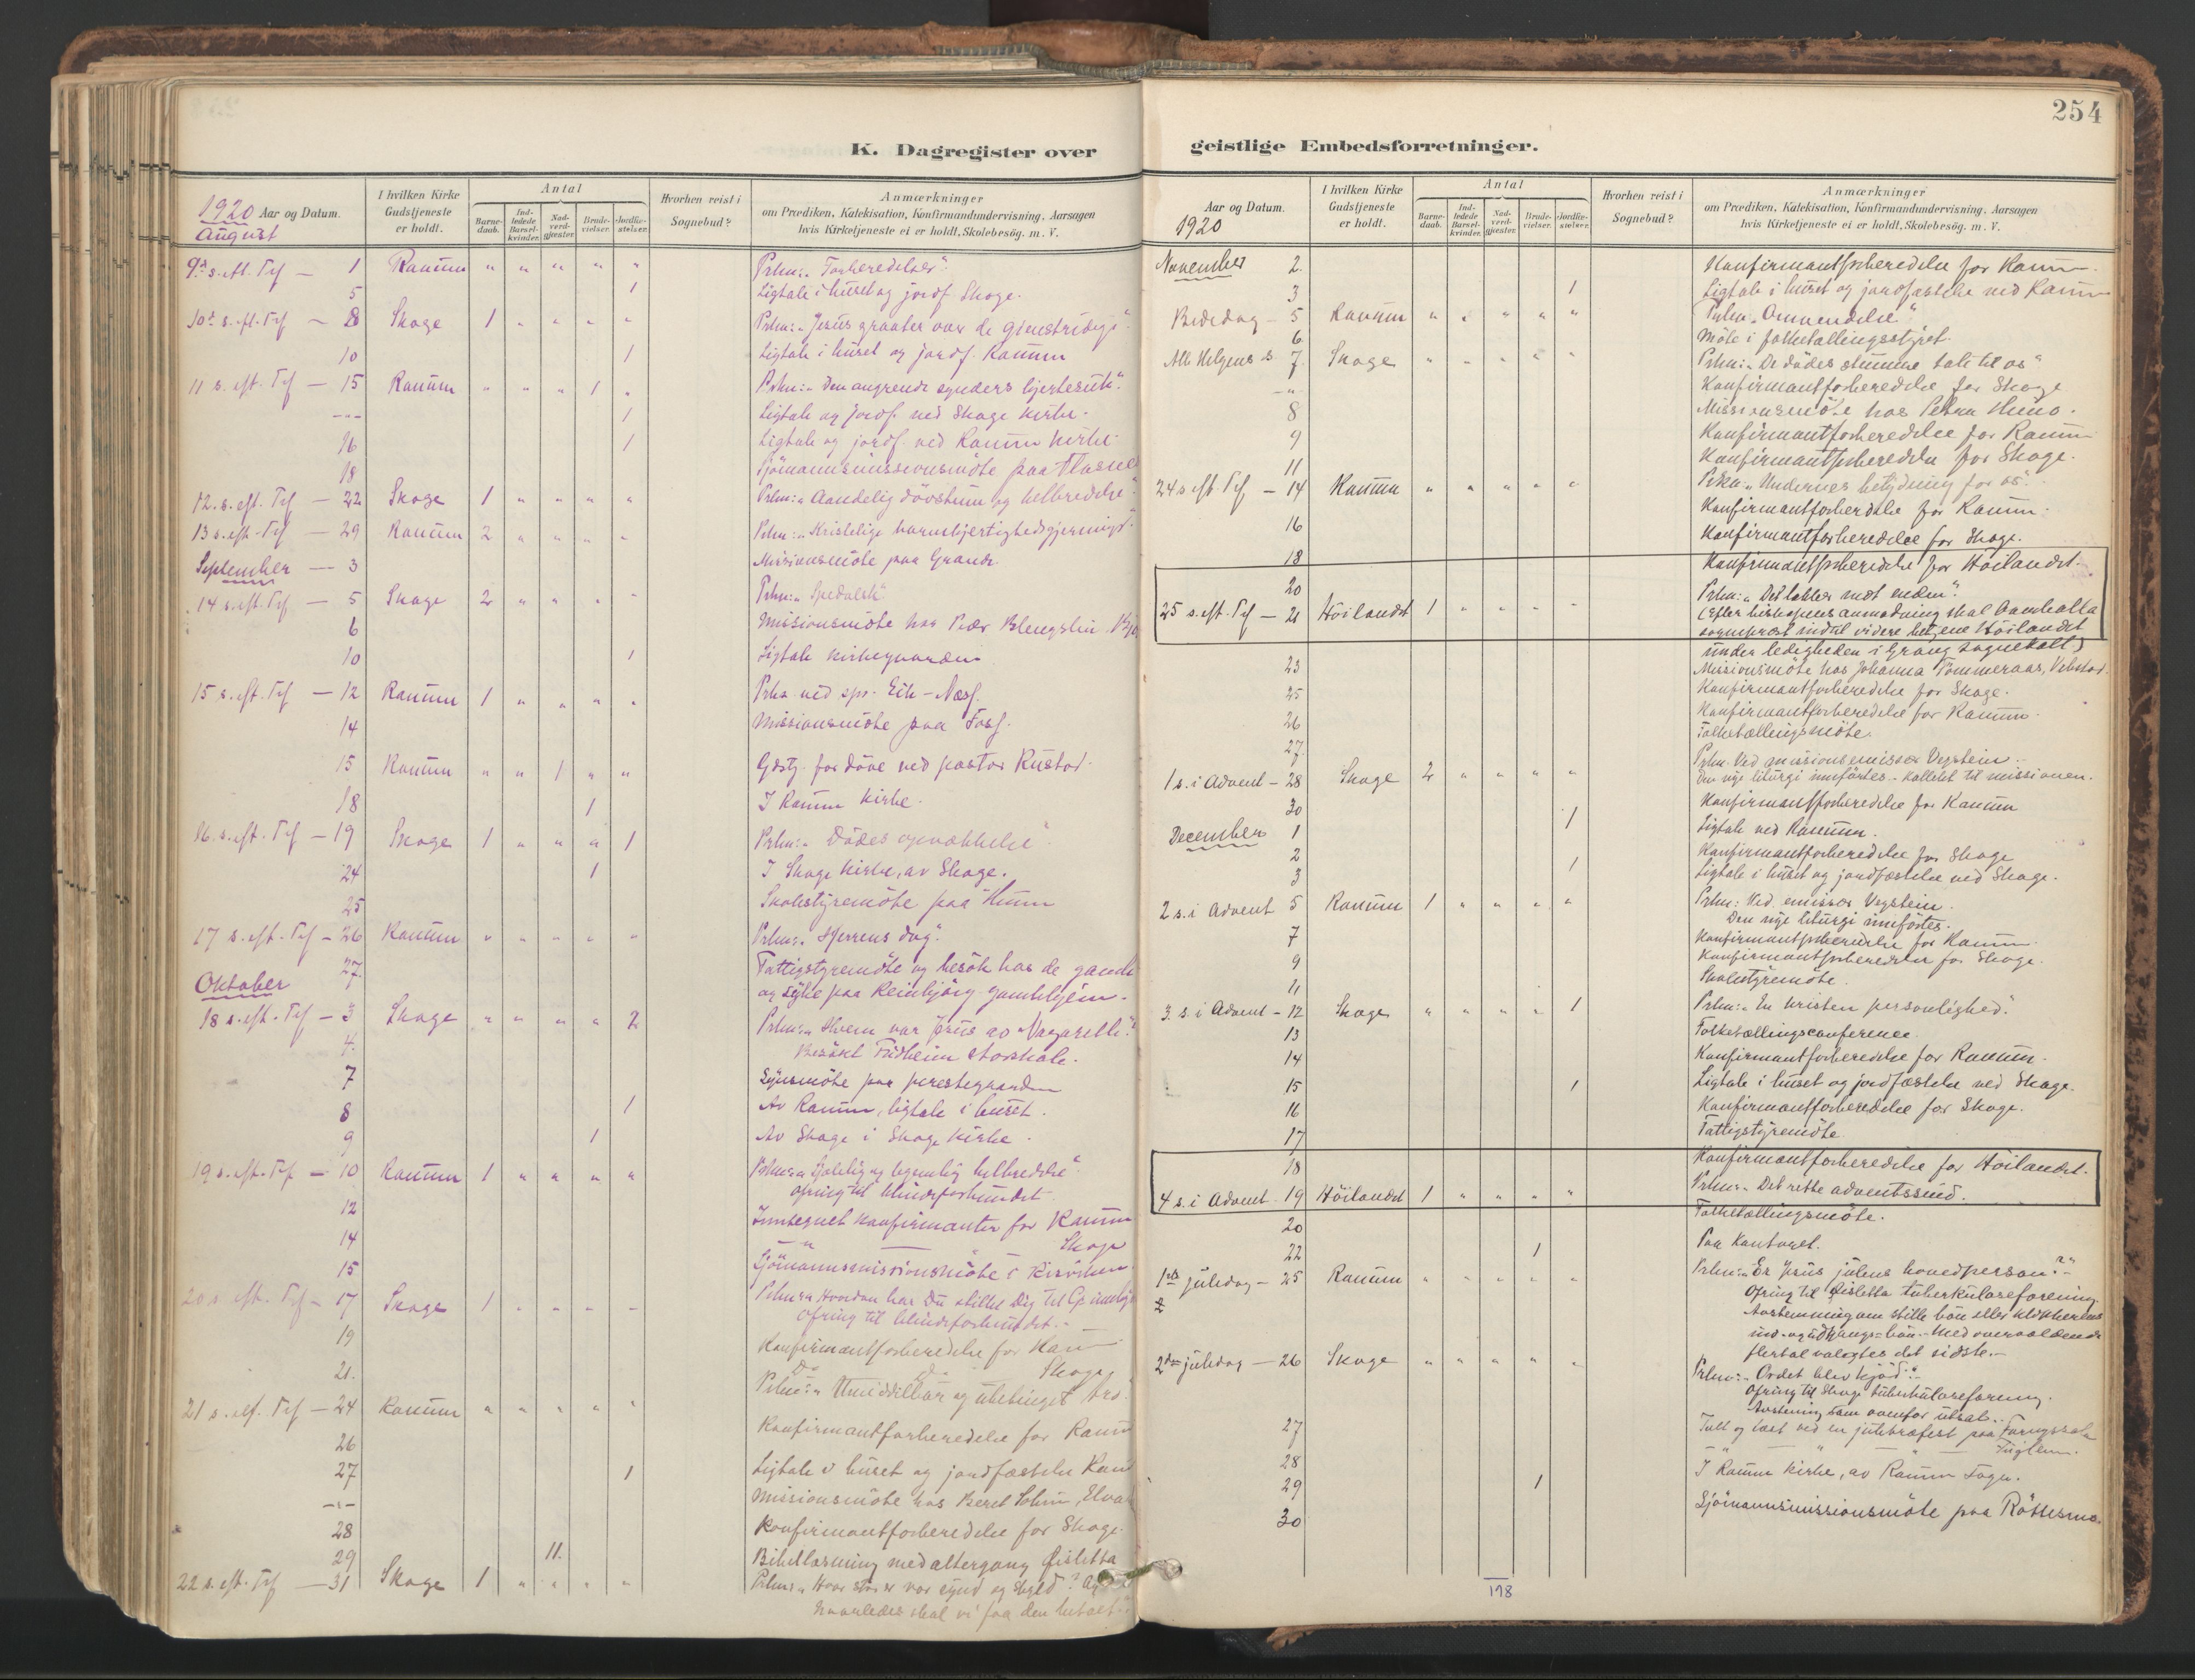 254
K. Dagregister over
geistlige Embedsforretninger.
1920 Aar og Datum.
August
I hvilken Kirke Gudstjeneste er holdt.
Antal
Barne-daab.
Ind-ledede Barsel-kvinder.
Nad-verd-gjæster.
Brude-vielser.
Jordfæ-stelser.
Hvorhen reist i Sognebud?
Anmærkninger
om Prædiken, Katekisation, Konfirmandundervisning, Aarsagen
hvis Kirketjeneste ei er holdt, Skolebesøg. m. V.
9de s. eft. Tref — 1 Ranum " " " " " Prkn: "Forberedelser".
5 1 Ligtale i huset og jordf. Skage.
10de s. eft. Tref — 8 Skage 1 " " " " Prkn: "Jesus graater over de gjenstridige".
10 1 Ligtale i huset og jordf. Ranum
11 s. eft. Tref — 15 Ranum " " " 1 " Prkn: "Den angrende synders hjertesuk".
--- 1 Ligtale og jordf. ved Skage kirke.
16 1 Ligtale og jordf. ved Ranum kirke
18 Sjömannsmissionsmöte paa
12. s. eft. Tref — 22 Skage 1 " " " " Prkn: "Aandelig dövstum og helbredelse".
13 s. eft. Tref — 29 Ranum 2 " " " " Prkn: "Kristelige barmhjertighedsgjerninger".
September — 3 Missionsmöte paa Grande
14 s. eft. Tref — 5 Skage 2 " " " " Prkn: "Spedalsk".
6 Missionsmöte hos Peder
10 1 Ligtale kirkegaarden
15 s. eft. Tref — 12 Ranum 1 " " " " Prkn ved spr. Eik-Næss.
14 Missionsmöte paa Foss.
15 Ranum " " 1 " " Gdstj. for döve ved pastor Rustad.
18 1 I Ranum kirke.
16. s. eft. Tref — 19 Skage 1 " " " 1 Prkn: "Dödes opvækkelse".
24 1 I Skage kirke, av Skage.
25 Skolestyremöte paa Hunn
17 s. eft. Tref — 26 Ranum " " " " " Prkn: "Herrens dag".
27. Fattigstyremöte og besök hos de gamle
Oktober og syke paa Reinbjörg gamlehjem.
18 s. eft. Tref — 3 Skage " " " " 2 Prkn: "Hvem var Jesus av Nazareth?"
4. Besökt Fridheim storskole.
7 Synsmöte paa prestegaarden
8 1 Av Ranum, ligtale i huset.
9 1 Av Skage i Skage kirke.
19 s. eft. Tref — 10 Ranum 1 " " " " Prkn: "Sjælelig og legemlig helbredelse".
Ofring til blindeforbundet.
12 Inntegnet konfirmanter for Ranum
14 — " — Skage
15 Sjömannsmissionsmöte i
20 s. eft. Tref — 17 Skage 1 " " " " Prkn: "Hvordan har Du stillet Dig til
Ofring til blindeforbundet.
19 Konfirmantforberedelse for Ran
21. Do Do Skage
21 s. eft. Tref — 24 Ranum " " " " " Prkn: "Umiddelbar og ubetinget tro".
26 Konfirmantforberedelse for Ranum
27 1 Ligtale i huset og jordfæstelse Ran
-"- Missionsmöte hos Beret
28 Konfirmantforberedelse for Skage.
29 11. Bibellæsning med altergang Öisletta
22 s. eft. Tref — 31 Skage 1 " " " " Prkn: "Hvor stor er vor synd og skyld? Og
hvorledes skal vi faa den betalt".
Aar og Datum.
1920
I hvilken Kirke Gudstjeneste er holdt.
Antal
Barne-daab.
Ind-ledede Barsel-kvinder.
Nad-verd-gjæster.
Brude-vielser.
Jordfæ-stelser.
Hvorhen reist i Sognebud?
Anmærkninger
om Prædiken, Katekisation, Konfirmandundervisning, Aarsagen
hvis Kirketjeneste ei er holdt, Skolebesøg. m. V.
November 2. Konfirmantforberedelse for Ranum.
3 1 Ligtale i huset og jordfæstelse ved Ranum
Bededag — 5 Ranum " " " " " Prkn "Omvendelse".
6 Möte i folketællingsstyret.
Alle Helgens s. 7. Skage " " " " " Prkn: "De dödes stumme tale til os"
-"- Konfirmantforberedelse for Skage
8 Missionsmöte hos Petra
9 Konfirmantforberedelse for Ranum
11 Konfirmantforberedelse for Skage.
24 s. eft. Tref — 14 Ranum " " " " " Prkn: "Underets betydning for os".
16 Konfirmantforberedelse for Ranum.
18 Konfirmantforberedelse for Skage.
20 Konfirmantforberedelse for Höilandet.
25 s. eft. Tref — 21 Höilandet 1 " " " " Prkn: "Det lakker mot enden".
(Efter biskopens anmodning skal Overhalla
sogneprest indtil videre betjene Höilandet
under ledigheden i Grong sognekall)
23 Missionsmöte hos Johanna Tömmeraas, Vibstad.
25 Konfirmantforberedelse for Skage.
26 Konfirmantforberedelse for Ranum.
27. Folketællingsmöte.
1 s. i Advent — 28 Skage 2 " " " " Prkn. Ved missionsemissær Vegstein.
Den nye liturgi innförtes. Kollekt til missionen.
30 Konfirmantforberedelse for Ranum
December 1 1 Ligtale ved Ranum.
2 Konfirmantforberedelse for Skage
3 1 Ligtale i huset og jordfæstelse ved Skage.
2 s. i Advent 5 Ranum 1 " " " " Prkn: Ved. emissær Vegstein.
Den nye liturgi innförtes.
7 Konfirmantforberedelse for Ranum.
9 Konfirmantforberedelse for Skage.
11 Skolestyremöte.
3. s. i Advent — 12 Skage " " " " 1 Prkn: "En kristen personlighed".
13 Folketællingsconference.
14 Konfirmantforberedelse for Ranum.
15 1 Ligtale i huset og jordfæstelse ved Skage.
16 Konfirmantforberedelse for Skage.
17 Fattigstyremöte
18 Konfirmantforberedelse for Höilandet.
4 s. i Advent. 19 Höilandet 1 " " " " Prkn: "Det rette adventssind.
20 Folketællingsmöte.
22 1 Paa Kontoret.
1ste juledag — 25 Ranum " " " " " Prkn: "Er Jesus julens hovedperson?"
2 Ofring til Öisletta tuberkuloseforening
Avstemning om stille bön eller klokkerens
ind- og udgangs-bön. Med overveldende
flertal valgtes det sidste.
2den juledag — 26 Skage " " " " " Prkn: "Ordet blev kjöd".
Ofring til Skage tuberkuloseforening.
Avstemning som ovenfor utsat.
27 Talt og læst ved en juletræfest paa
28 — " — " — " —
29 1 I Ranum kirke, av Ranum Sogn.
30 Sjömannsmissionsmöte paa
198